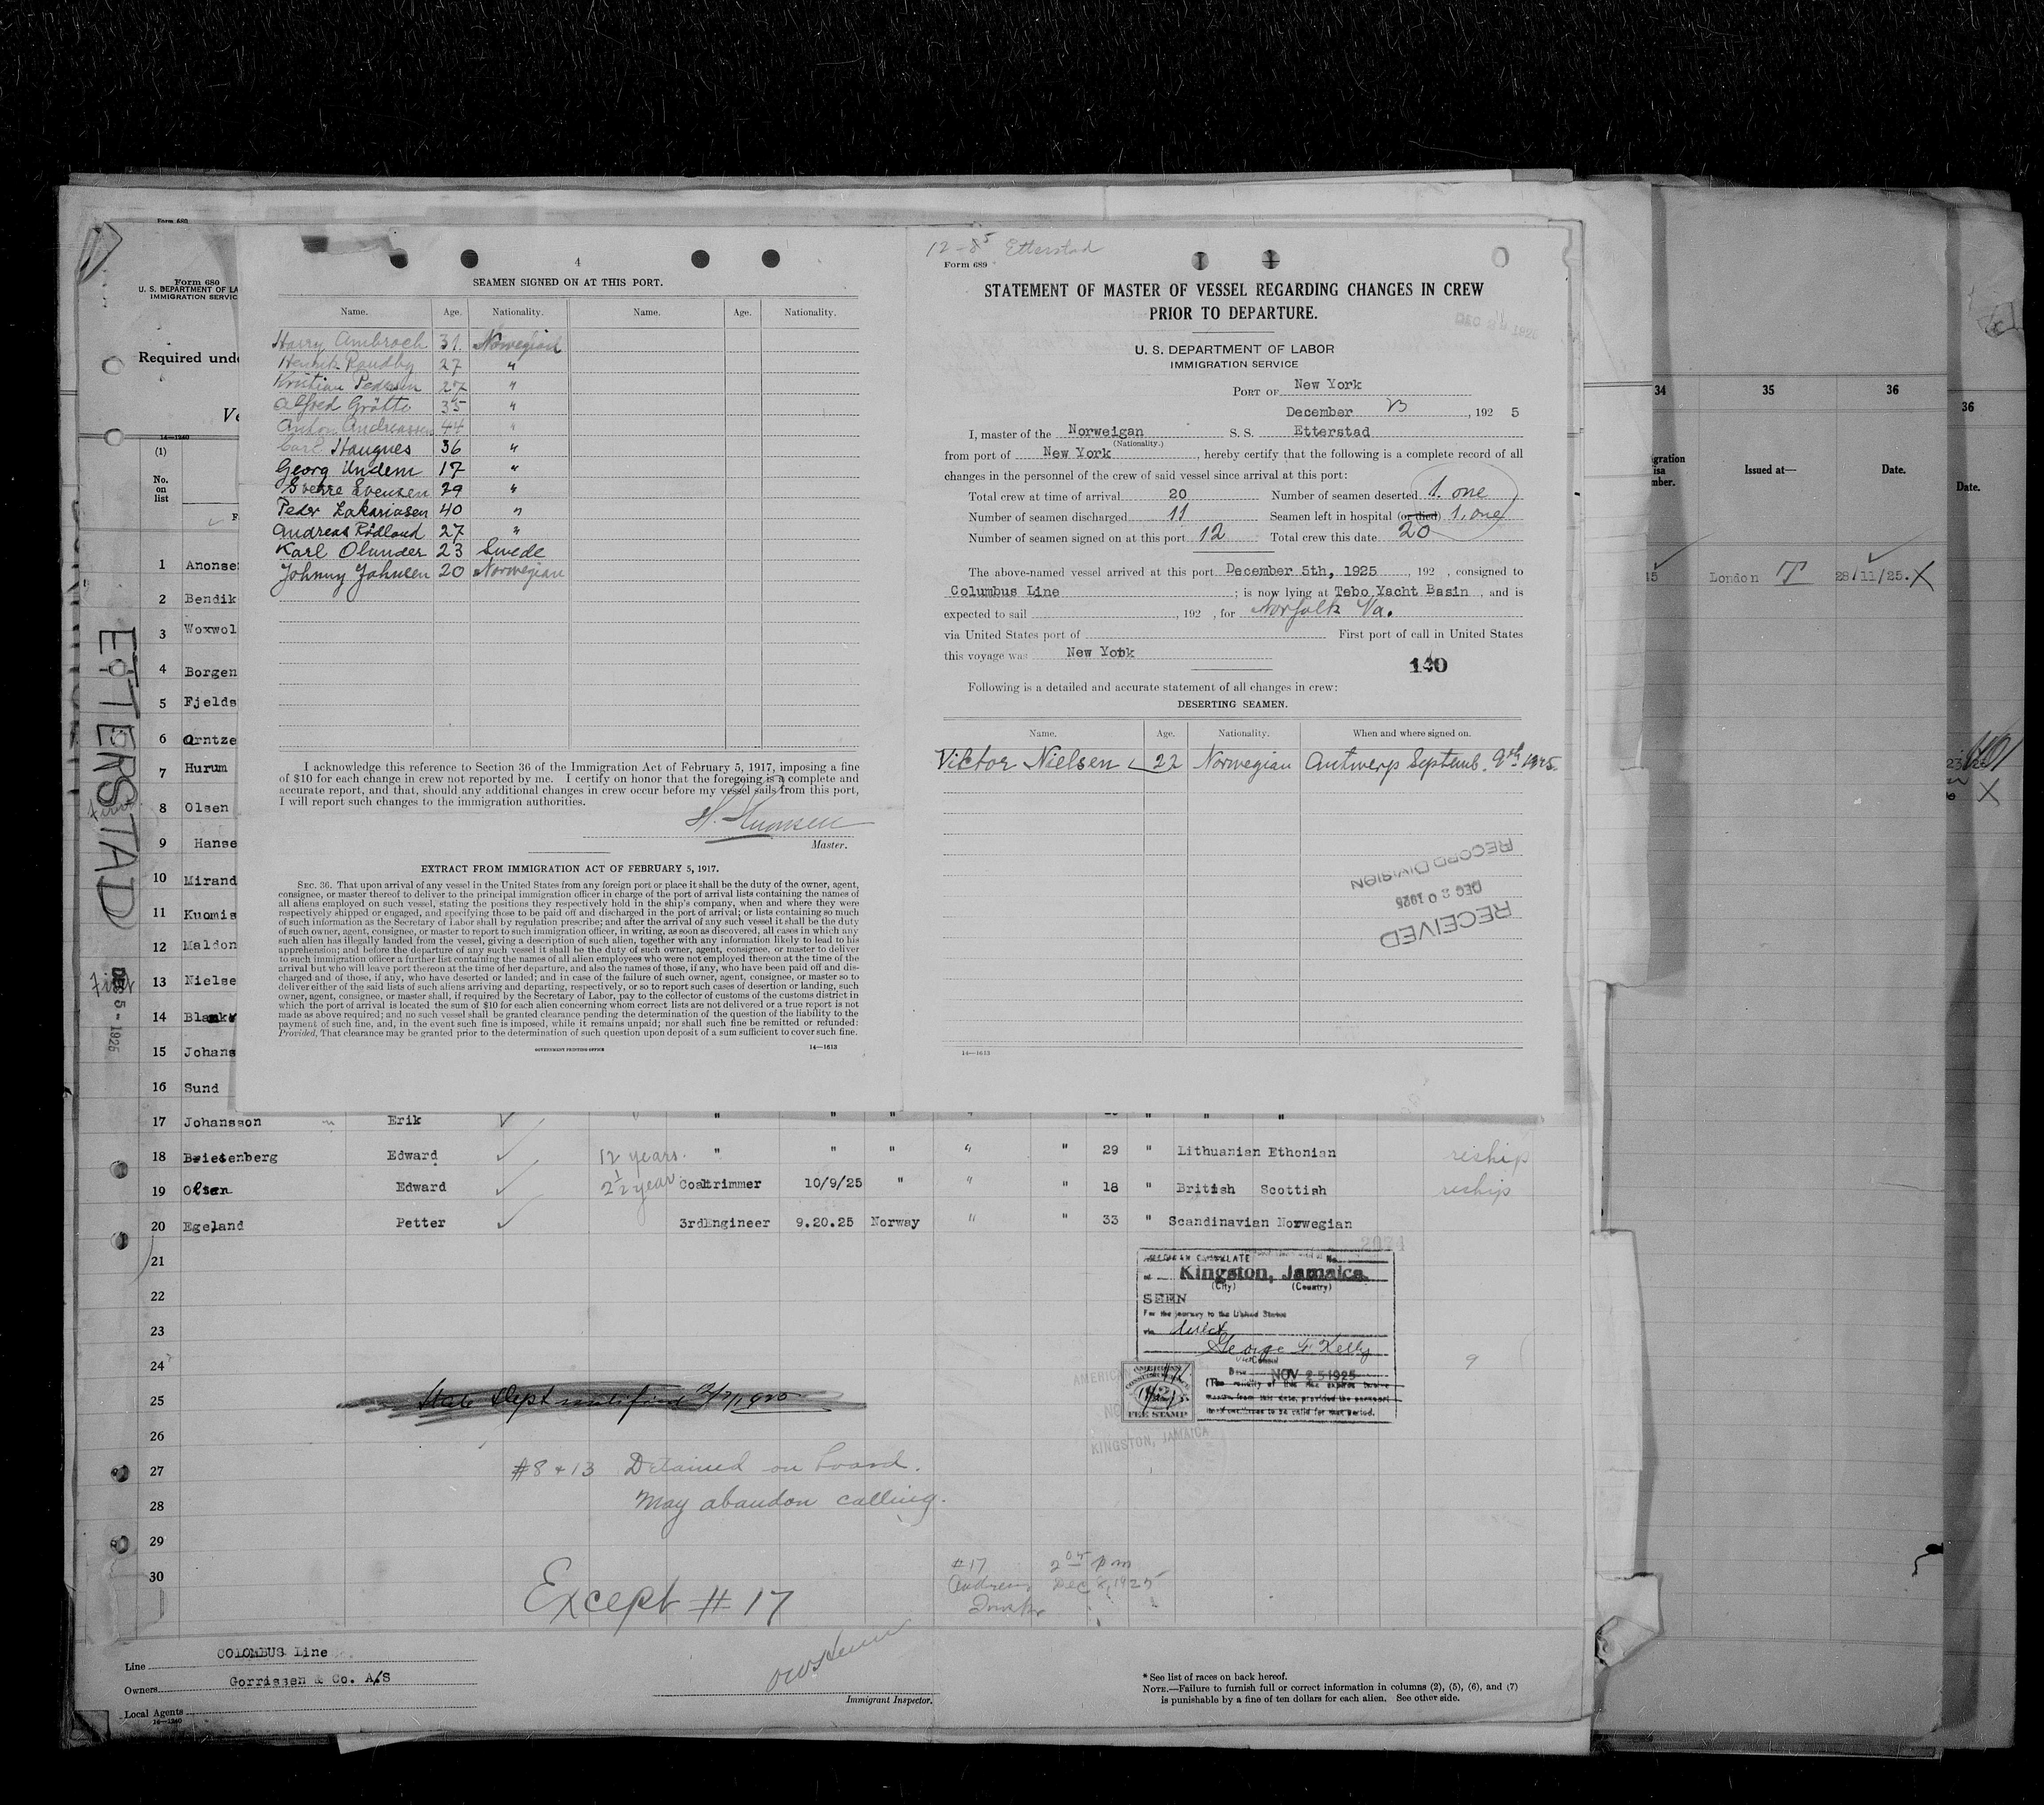 4
SEAMEN SIGNED ON AT THIS PORT.
Name. Age. Nationality. Name. Age. Nationality.
Harry Ambroch 31 Norwegian
Henrik Raudby 27 "
Kristian Pedersen 27 "
Alfred Grötte 35 "
Anton Andreassen 44 "
Carl Haugnes 36 "
Georg Undem 17 "
Sverre Svensen 29 "
Peder Zakariasen 40 "
Andreas Rödland 27 "
Karl Olunder 23 Swede
Johnny Johnsen 20 Norwegian
I acknowledge this reference to Section 36 of the Immigration Act of February 5, 1917, imposing a fine
of $10 for each change in crew not reported by me. I certify on honor that the foregoing is a complete and
accurate report, and that, should any additional changes in crew occur before my vessel sails from this port,
I will report such changes to the immigration authorities.
Master.
EXTRACT FROM IMMIGRATION ACT OF FEBRUARY 5, 1917.
SEC. 36. That upon arrival of any vessel in the United States from any foreign port or place it shall be the duty of the owner, agent,
consignee, or master thereof to deliver to the principal immigration officer in charge of the port of arrival lists containing the names of
all aliens employed on such vessel, stating the positions they respectively hold in the ship's company, when and where they were
respectively shipped or engaged, and specifying those to be paid off and discharged in the port of arrival; or lists containing so much
of such information as the Secretary of Labor shall by regulation prescribe; and after the arrival of any such vessel it shall be the duty
of such owner, agent, consignee, or master to report to such immigration officer, in writing, as soon as discovered, all cases in which any
such alien has illegally landed from the vessel, giving a description of such alien, together with any information likely to lead to his
apprehension; and before the departure of any such vessel it shall be the duty of such owner, agent, consignee, or master to deliver
to such immigration officer a further list containing the names of all alien employees who were not employed thereon at the time of the
arrival but who will leave port thereon at the time of her departure, and also the names of those, if any, who have been paid off and dis-
charged and of those, if any, who have deserted or landed; and in case of the failure of such owner, agent, consignee, or master so to
deliver either of the said lists of such aliens arriving and departing, respectively, or so to report such cases of desertion or landing, such
owner, agent, consignee, or master shall, if required by the Secretary of Labor, pay to the collector of customs of the customs district in
which the port of arrival is located the sum of $10 for each alien concerning whom correct lists are not delivered or a true report is not
made as above required; and no such vessel shall be granted clearance pending the determination of the question of the liability to the
payment of such fine, and, in the event such fine is imposed, while it remains unpaid; nor shall such fine be remitted or refunded:
Provided, That clearance may be granted prior to the determination of such question upon deposit of a sum sufficient to cover such fine.
GOVERNMENT PRINTING OFFICE 14—1613
12-8 Etterstad
Form 689
STATEMENT OF MASTER OF VESSEL REGARDING CHANGES IN CREW
PRIOR TO DEPARTURE.
U. S. DEPARTMENT OF LABOR
IMMIGRATION SERVICE
PORT OF New York
December , 192 5
I, master of the Norweigan S. S. Etterstad
(Nationality.)
from port of New York, hereby certify that the following is a complete record of all
changes in the personnel of the crew of said vessel since arrival at this port:
Total crew at time of arrival 20 Number of seamen deserted 1. one
Number of seamen discharged 11 Seamen left in hospital (or died) 1. one
Number of seamen signed on at this port 12 Total crew this date 20
The above-named vessel arrived at this port December 5th, 1925, 192 , consigned to
Columbus Line; is now lying at Tebo Yacht Basin, and is
expected to sail , 192 , for Norfolk Va.
via United States port of First port of call in United States
this voyage was New York
140
Following is a detailed and accurate statement of all changes in crew:
DESERTING SEAMEN.
Name. Age. Nationality. When and where signed on.
Viktor Nielsen 22 Norwegian Antwerp Septemb. 9th 1925.
RECEIVED
DEC 20 1925
RECORD DIVISION
14—1613
Form 680
Form 680
U. S. DEPARTMENT OF LA
IMMIGRATION SERVIC
Required unde
Ve
14—1240
(1)
No.
on
list
F
ETTERSTAD
DEC 5 - 1925
1 Anonse
2 Bendik
3 Woxwol
4 Borgen
5 Fjelds
6 Orntze
7 Hurum
8 Olsen
9 Hanse
10 Mirand
11 Kuomis
12 Maldon
13 Nielse
14 Blank
15 Johans
16 Sund
17 Johansson Erik " " " " " "
18 Briesenberg Edward 12 years. " " " " " 29 " Lithuanian Ethonian reship
19 Olsen Edward 2½ year Coaltrimmer 10/9/25 " " " 18 " British Scottish reship
20 Egeland Petter 3rdEngineer 9.20.25 Norway " " 33 " Scandinavian Norwegian
21
22
23
24
25
26
27
28
29
30
AMERICAN CONSULATE No.
at Kingston, Jamaica.
(City) (Country)
SEEN
For the journey to the United States
via direct
George F. Kelly
Vice Consul
Date NOV 25 1925
(The validity of this visa expires twelve
months from this date, provided the passport
continues to be valid for that period.
AMERICAN
CONSULAR SERVICE
FEE STAMP
KINGSTON, JAMAICA
State Dept notified
#8 + 13 Detained on board.
May abandon calling.
Except #17
#17 2 05 pm
Andrew Dec 8, 1925
Line COLOMBUS Line
Owners Gorrissen & Co. A/S
Local Agents
16—1240
Immigrant Inspector.
* See list of races on back hereof.
NOTE.—Failure to furnish full or correct information in columns (2), (5), (6), and (7)
is punishable by a fine of ten dollars for each alien. See other side.
34 35 36
gration
isa
mber.
Issued at—
Date.
15 London 28/11/25. X
36
Date.
X